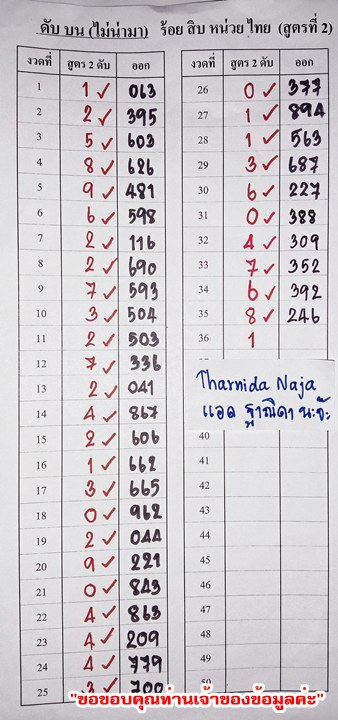 ดับ บน (ไม่น่ามา) ร้อย สิบ หน่วย ไทย (สูตรที่ 2)
งวดที่ สูตร 2 ดับ ออก
1 1 ✓ 063
2 2 ✓ 395
3 5 ✓ 603
4 8 ✓ 626
5 9 ✓ 481
6 6 ✓ 598
7 2 ✓ 116
8 2 ✓ 690
9 7 ✓ 593
10 3 ✓ 504
11 2 ✓ 503
12 7 ✓ 336
13 2 ✓ 041
14 4 ✓ 867
15 2 ✓ 606
16 1 ✓ 662
17 3 ✓ 665
18 0 ✓ 962
19 2 ✓ 044
20 9 ✓ 221
21 0 ✓ 843
22 4 ✓ 863
23 4 ✓ 209
24 4 ✓ 779
25 3 ✓ 700
งวดที่ สูตร 2 ดับ ออก
26 0 ✓ 377
27 1 ✓ 894
28 1 ✓ 563
29 3 ✓ 687
30 6 ✓ 227
31 0 ✓ 388
32 4 ✓ 309
33 7 ✓ 352
34 6 ✓ 392
35 8 ✓ 246
36 1
Tharnida Naja
แอด ฐาณิดา นะจ๊ะ
40
41
42
43
44
45
46
47
48
49
50
"ขอขอบคุณท่านเจ้าของข้อมูลค่ะ"